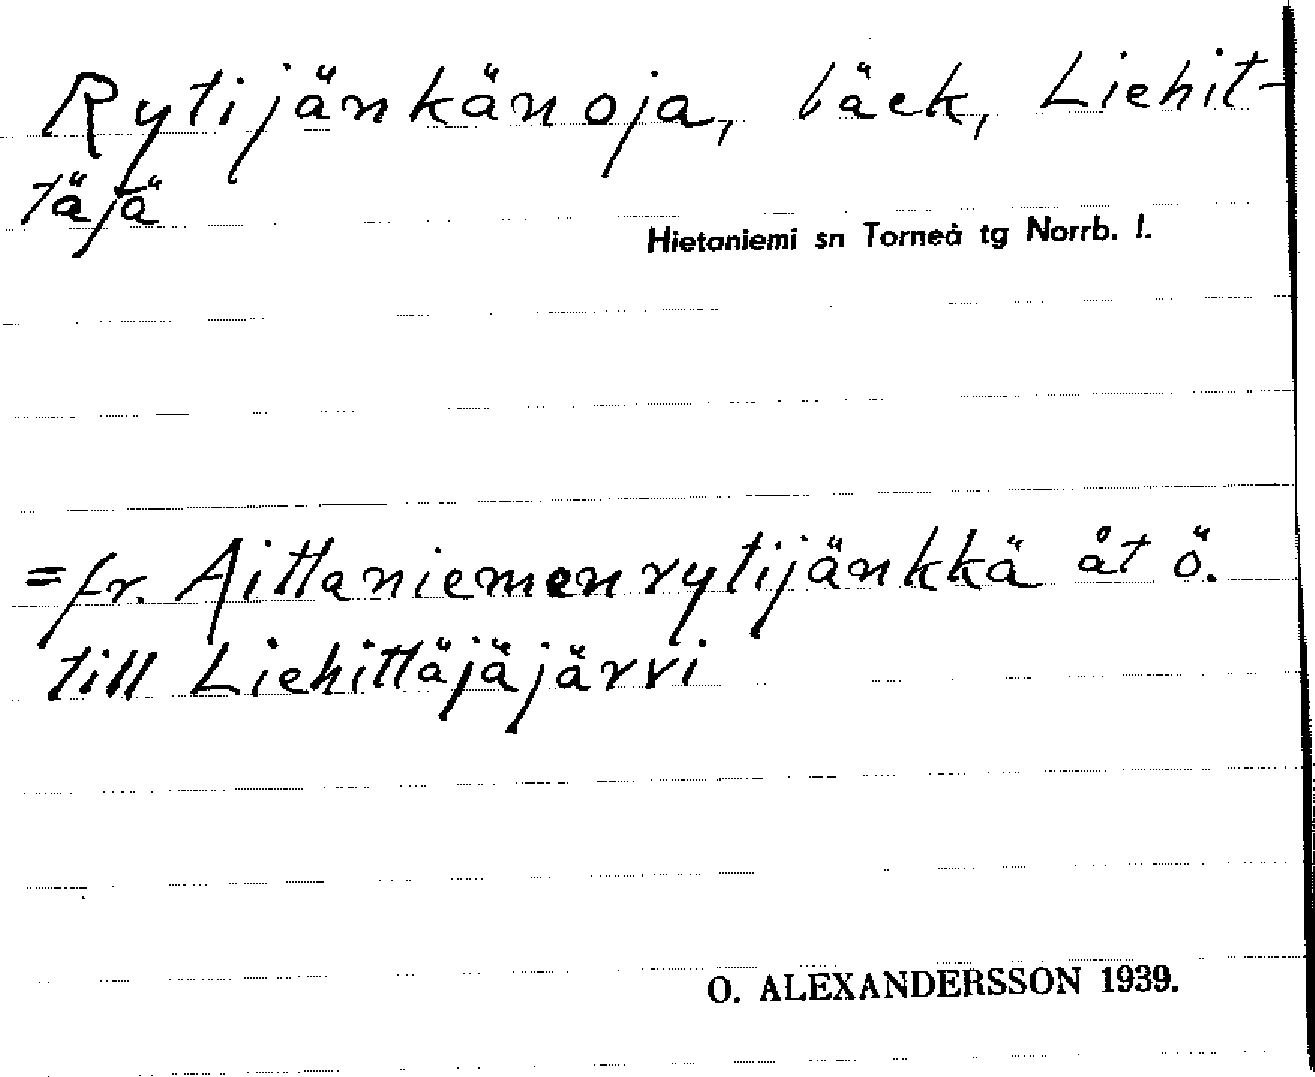 Rytijänkänoja, bäck, Liehit-
täjä
Hietaniemi sn Torneå tg Norrb. l.
= fr. Aittaniemenrytijänkkä åt ö.
till Liehittäjäjärvi
O. ALEXANDERSSON 1939.